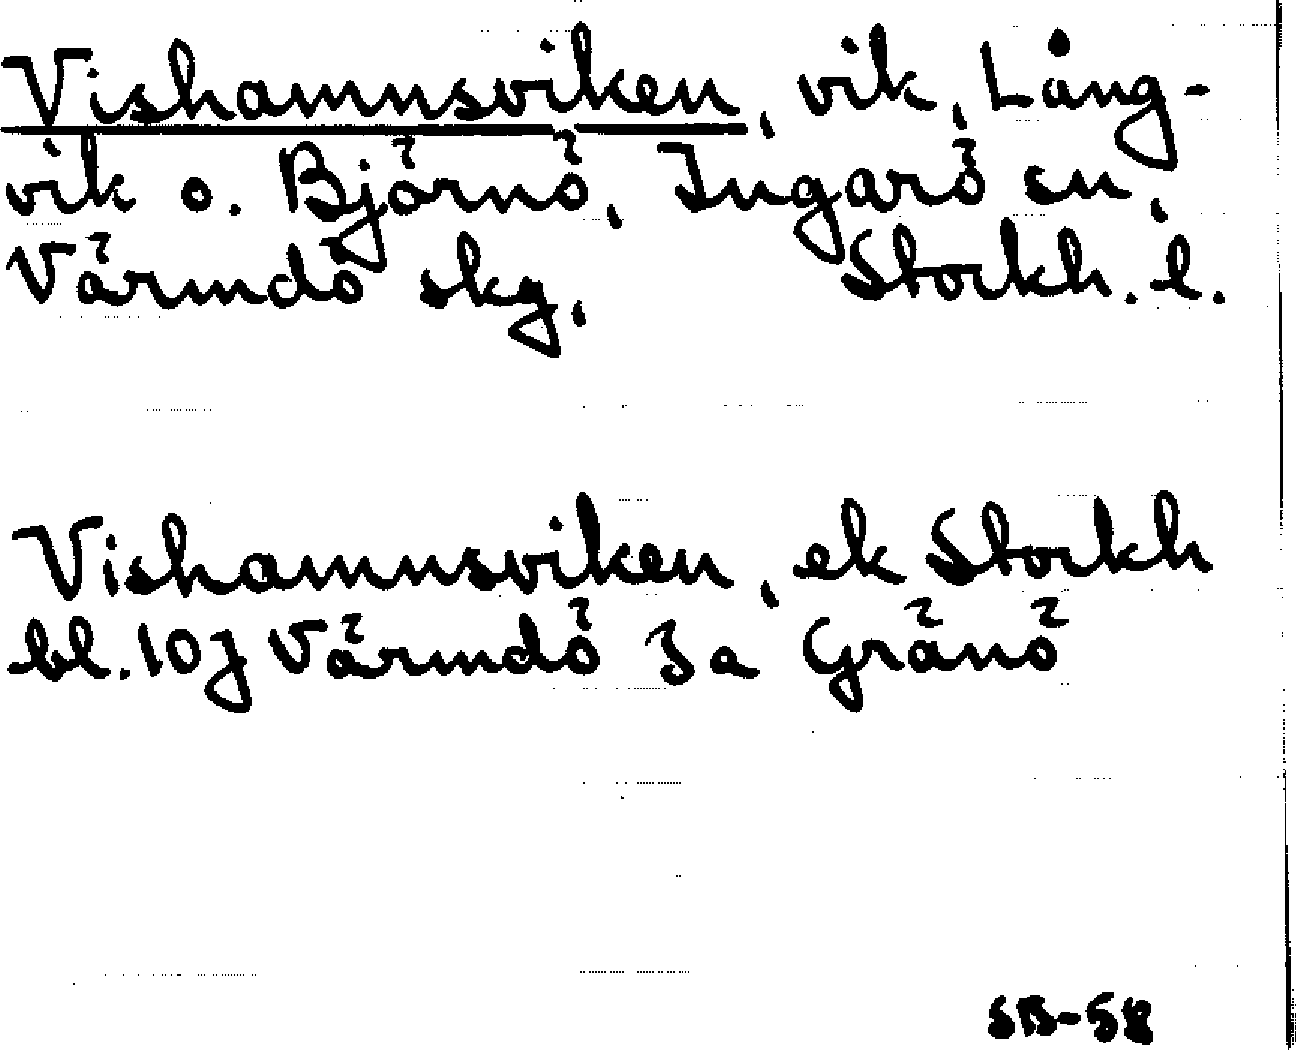 Vishamnsviken, vik, Lång-
vik o. Björnö, Ingarö sn,
Värmdö skg, Stockh. l.
Vishamnsviken, ek Stockh
bl. 10J Värmdö 3a Gränö
SB-58